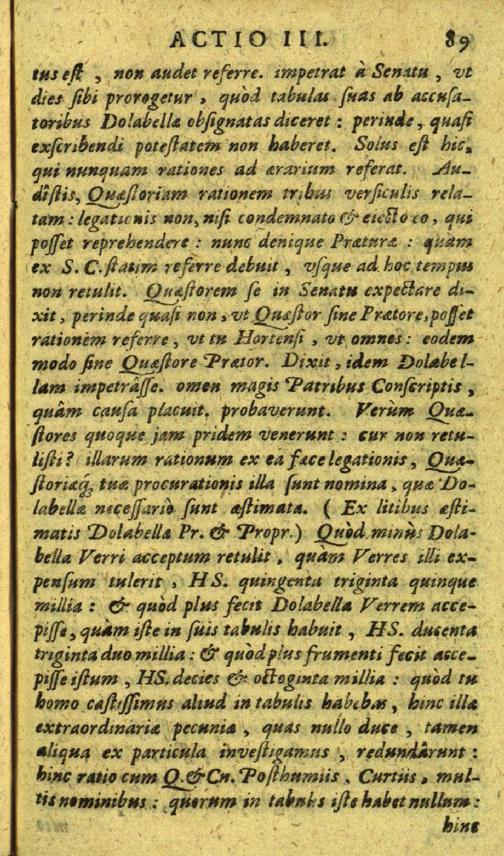 ACTIO III. 89
tus est, non audet referre. impetrat à Senatu, vt
dies sibi prorogetur, quòd tabulas suas ab accusa-
toribus Dolabellæ obsignatas diceret: perinde, quasi
exscribendi potestatem non haberet. Solus est hic,
qui nunquam rationes ad ærarium referat. Au-
distis, Quæstoriam rationem tribus versiculis rela-
tam: legationis non, nisi condemnato & eiecto eo, qui
posset reprehendere: nunc denique Præturæ: quam
ex S. C. statim referre debuit, vsque ad hoc tempus
non retulit. Quæstorem se in Senatu expectare di-
xit, perinde quasi non, vt Quæstor sine Prætore, posset
rationem referre, vt tu Hortensi, vt omnes: eodem
modo sine Quæstore Prætor. Dixit, idem Dolabel-
lam impetrâsse. omen magis Patribus Conscriptis,
quâm causa placuit. probaverunt. Verum Quæ-
stores quoque jam pridem venerunt: cur non retu-
listi? illarum rationum ex ea fæce legationis, Quæ-
storiæq; tuæ procurationis illa sunt nomina, quæ Do-
labellæ necessariò sunt æstimata. (Ex litibus æsti-
matis Dolabella Pr. & Propr.) Quòd minùs Dola-
bella Verri acceptum retulit, quàm Verres illi ex-
pensum tulerit, HS. quingenta triginta quinque
millia: & quòd plus fecit Dolabella Verrem acce-
pisse, quàm iste in suis tabulis habuit, HS. ducenta
triginta duo millia: & quòd plus frumenti fecit acce-
pisse istum, HS. decies & octoginta millia: quòd tu
homo castissimus aliud in tabulis habebas, hinc illæ
extraordinariæ pecuniæ, quas nullo duce, tamen
aliqua ex particula investigamus, redundârunt:
hinc ratio cum Q. & Cn. Posthumiis, Curtiis, mul-
tis nominibus: quorum in tabulis iste habet nullum:
hinc